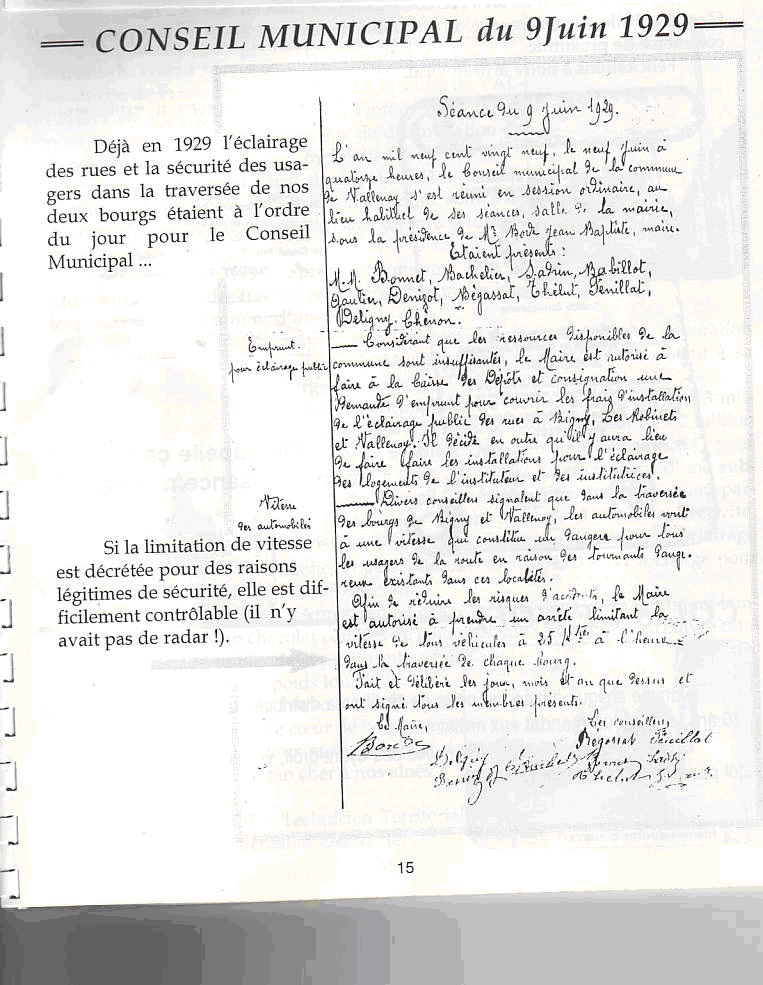 CONSEIL MUNICIPAL du 9Juin 1929
Déjà en 1929 l'éclairage
des rues et la sécurité des usa-
gers dans la traversée de nos
deux bourgs étaient à l'ordre
du jour pour le Conseil
Municipal ...
Emprunt
pour éclairage public
Vitesse
des automobiles
Si la limitation de vitesse
est décrétée pour des raisons
légitimes de sécurité, elle est dif-
ficilement contrôlable (il n'y
avait pas de radar !).
Séance du 9 Juin 1929.
L'an mil neuf cent vingt neuf, le neuf Juin à
quatorze heures, le Conseil municipal de la commune
de Vallenay s'est réuni en session ordinaire, au
lieu habituel de ses séances, salle de la mairie,
sous la présidence de Mr Borde Jean Baptiste, maire.
Etaient présents :
M.M. Bonnet, Bachelier, Sadrin, Babillot,
Gautier, Denizot, Bégassat, Thélut, Fénillat,
Deligny, Chénon.
Considérant que les ressources disponibles de la
commune sont insuffisantes, le Maire est autorisé à
faire à la Caisse des Dépôts et consignation une
demande d'emprunt pour couvrir les frais d'installation
de l'éclairage public des rues à Bigny, Les Robinets
et Vallenay. Il décide en outre qu'il y aura lieu
de faire faire les installations pour l'éclairage
des logements de l'instituteur et des institutrices.
Divers conseillers signalent que dans la traversée
des bourgs de Bigny et Vallenay, les automobiles vont
à une vitesse qui constitue un danger pour tous
les usagers de la route en raison des tournants dange-
reux existants dans ces localités.
Afin de réduire les risques d'accidents, le Maire
est autorisé à prendre un arrêté limitant la
vitesse de tous véhicules à 25 Kres à l'heure
dans la traversée de chaque bourg.
Fait et délibéré les jour, mois et an que dessus et
ont signé tous les membres présents.
Le Maire,
Les conseillers,
Borde
Bégassat Fénillat
15